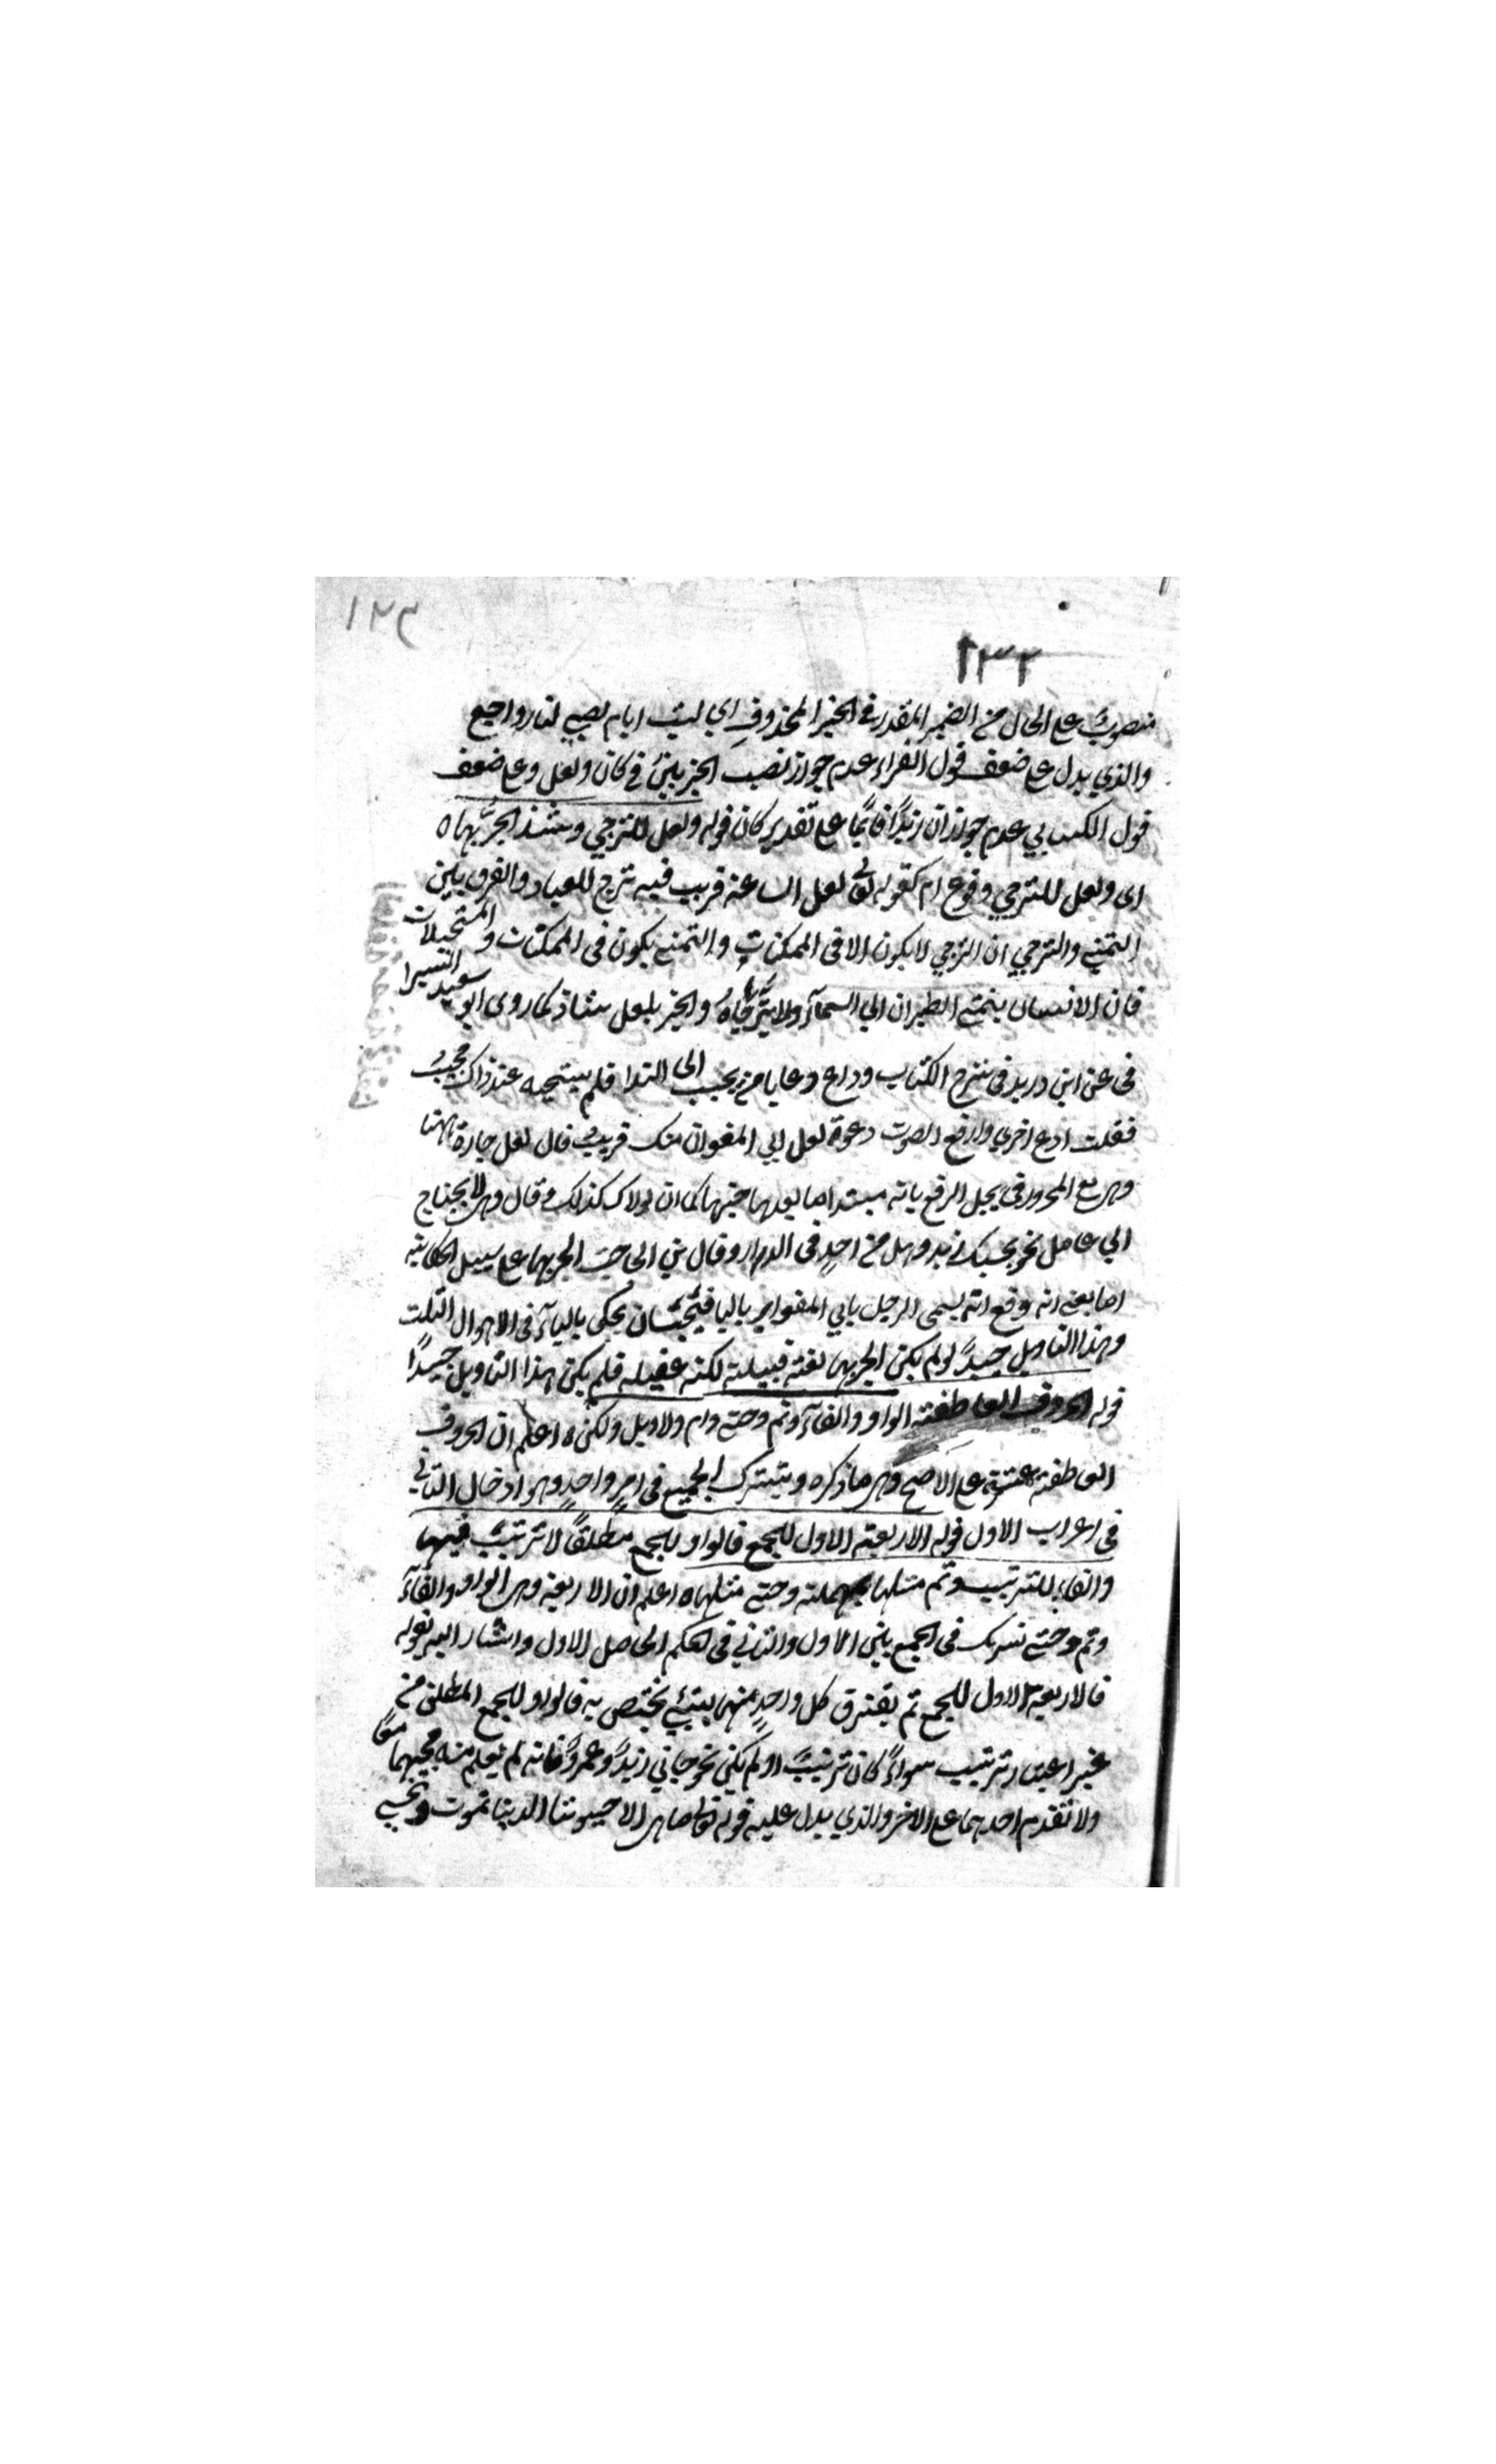 ١٢٣
١٣٢
منصوبٌ على الحال من الضمير المقدر في الخبر المحذوف اي ليت ايام لنا رواجع
والذي يدل على ضعف قول الفراء عدم جواز نصب الجزيين في كان ولعل وعلى ضعف
قول الكسايي عدم جواز ان زيدًا قائمًا على تقدير كان قوله ولعل للترجي وشذ الجرُّ بها ه
اى ولعل للترجي وقوع امر كقوله تعالى لعل الساعة قريب فيه ترج للعباد والفرق بين
التمنى والترجي ان الترجي لا يكون الا فى الممكنات والتمنى يكون فى الممكنات والمستحيلات
فان الانسان يتمنى الطيران الي السمآء ولا يترجاه والجر بلعل شاذ كما روى ابو سعيد السيرا
فى عن ابن دريد فى شرح الكتاب وداع دعا يا من يجيب الى الندا فلم يستجبه عند ذاك مجيبُ
فقلت ادع اخرى وارفع الصوت دعوة لعل ابي المغوار منك قريبٌ قال لعل جارة ههنا
وهى مع المجرور فى محل الرفع بانه مبتدا ما بعدها خبرها كما ان لولاك كذلك وقال وهى لا يحتاج
الي عامل نحو بحسبك زيد وهل من احدٍ فى الدار وقال بن الحاجب الجر بها على سبيل الحكاية
اما بمعنى انه وقع انه يسمى الرجل بابي المغوار باليا يحكى بالياء فى الاحوال الثلث
وهذا التاويل جيدٌ لو لم يكن الجر بها لغة قبيلة لكنه عقيله فلم يكن هذا التاويل جيدًا
قوله الحروف العاطفة الواو والفآء وثم وحتى وام ولا وبل ولكن ه اعلم ان الحروف
العاطفة عشرة على الاصح وهى ما ذكره ويشترك الجميع فى امرٍ واحدٍ وهو ادخال الثاني
فى اعراب الاول قوله الاربعة الاول للجمع فالواو للجمع مطلقًا لا ترتيبَ فيها
والفاء للترتيب وثم مثلها بمهلة وحتى مثلها ه اعلم ان الاربعة وهى الواو والفآء
وثم وحتى تشرك فى الجمع بين الاول والثاني فى الحكم الحاصل الاول واشار اليه بقوله
فالاربعة الاول للجمع ثم يفترق كل واحدٍ منها بشئٍ يختص به فالواو للجمع المطلق من
غير اعتبار ترتيب سواءً كان ترتيبٌ او لم يكن نحو جاني زيدٌ وعمروٌ فانه لم يعلم منه مجيهما معًا
ولا تقدم احدهما على الاخر والذي يدل عليه قوله تعالى ما هى الا حيوتنا الدنيا نموت ونحيى